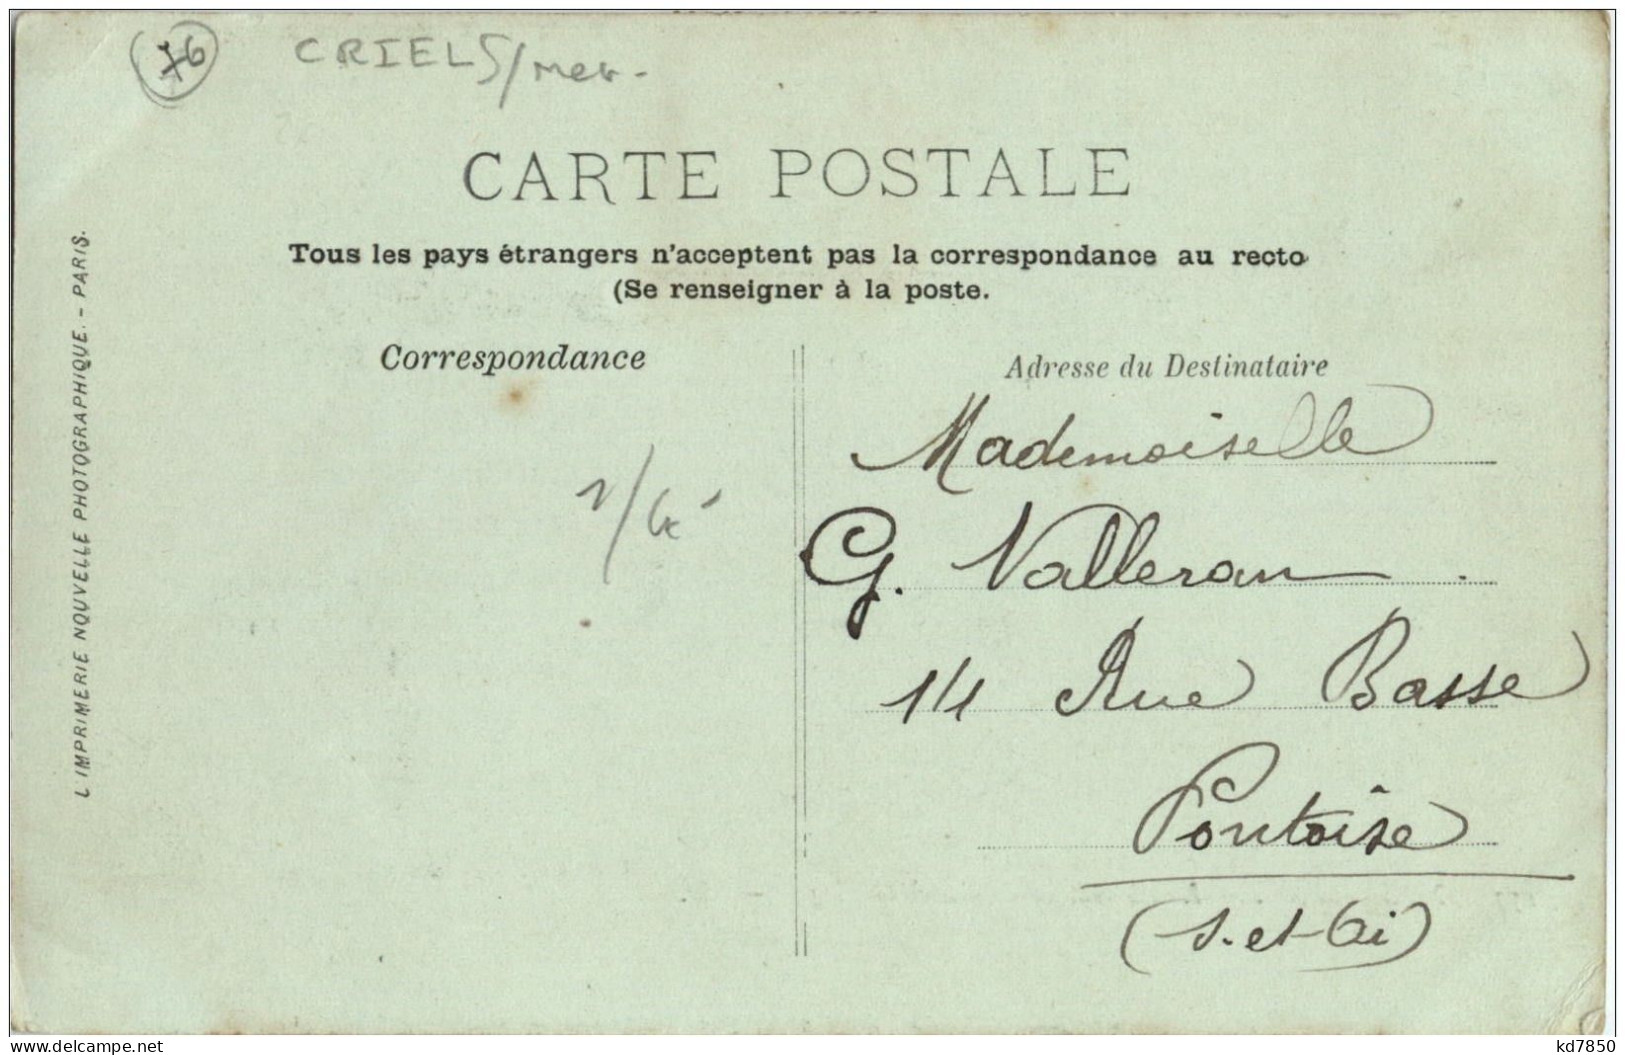 76
CRIEL S/mer.
CARTE POSTALE
Tous les pays étrangers n'acceptent pas la correspondance au recto
(Se renseigner à la poste.
L'IMPRIMERIE NOUVELLE PHOTOGRAPHIQUE. - PARIS.
Correspondance
Adresse du Destinataire
Mademoiselle
G. Valleran.
14 Rue Basse
Pontoise
(S.-et-Oi)
delcampe.net
kd7850